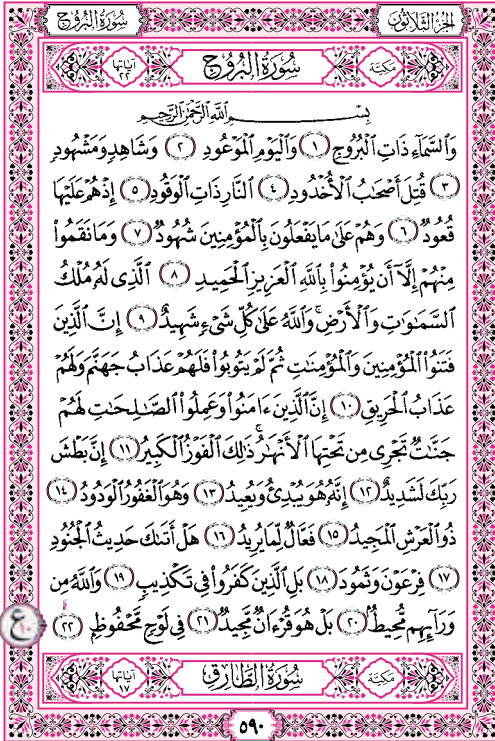 الجزء الثلاثون سورة البروج
مكية سورة البروج آياتها ٢٢
بِسْمِ اللَّهِ الرَّحْمَٰنِ الرَّحِيمِ
وَالسَّمَاءِ ذَاتِ الْبُرُوجِ ١ وَالْيَوْمِ الْمَوْعُودِ ٢ وَشَاهِدٍ وَمَشْهُودٍ
٣ قُتِلَ أَصْحَابُ الْأُخْدُودِ ٤ النَّارِ ذَاتِ الْوَقُودِ ٥ إِذْ هُمْ عَلَيْهَا
قُعُودٌ ٦ وَهُمْ عَلَىٰ مَا يَفْعَلُونَ بِالْمُؤْمِنِينَ شُهُودٌ ٧ وَمَا نَقَمُوا
مِنْهُمْ إِلَّا أَن يُؤْمِنُوا بِاللَّهِ الْعَزِيزِ الْحَمِيدِ ٨ الَّذِي لَهُ مُلْكُ
السَّمَاوَاتِ وَالْأَرْضِ ۚ وَاللَّهُ عَلَىٰ كُلِّ شَيْءٍ شَهِيدٌ ٩ إِنَّ الَّذِينَ
فَتَنُوا الْمُؤْمِنِينَ وَالْمُؤْمِنَاتِ ثُمَّ لَمْ يَتُوبُوا فَلَهُمْ عَذَابُ جَهَنَّمَ وَلَهُمْ
عَذَابُ الْحَرِيقِ ١٠ إِنَّ الَّذِينَ ءَامَنُوا وَعَمِلُوا الصَّالِحَاتِ لَهُمْ
جَنَّاتٌ تَجْرِي مِن تَحْتِهَا الْأَنْهَارُ ۚ ذَٰلِكَ الْفَوْزُ الْكَبِيرُ ١١ إِنَّ بَطْشَ
رَبِّكَ لَشَدِيدٌ ١٢ إِنَّهُ هُوَ يُبْدِئُ وَيُعِيدُ ١٣ وَهُوَ الْغَفُورُ الْوَدُودُ ١٤
ذُو الْعَرْشِ الْمَجِيدُ ١٥ فَعَّالٌ لِّمَا يُرِيدُ ١٦ هَلْ أَتَاكَ حَدِيثُ الْجُنُودِ
١٧ فِرْعَوْنَ وَثَمُودَ ١٨ بَلِ الَّذِينَ كَفَرُوا فِي تَكْذِيبٍ ١٩ وَاللَّهُ مِن
وَرَائِهِم مُّحِيطٌ ٢٠ بَلْ هُوَ قُرْءَانٌ مَّجِيدٌ ٢١ فِي لَوْحٍ مَّحْفُوظٍ ٢٢
ع
مكية سورة الطارق آياتها ١٧
٥٩٠